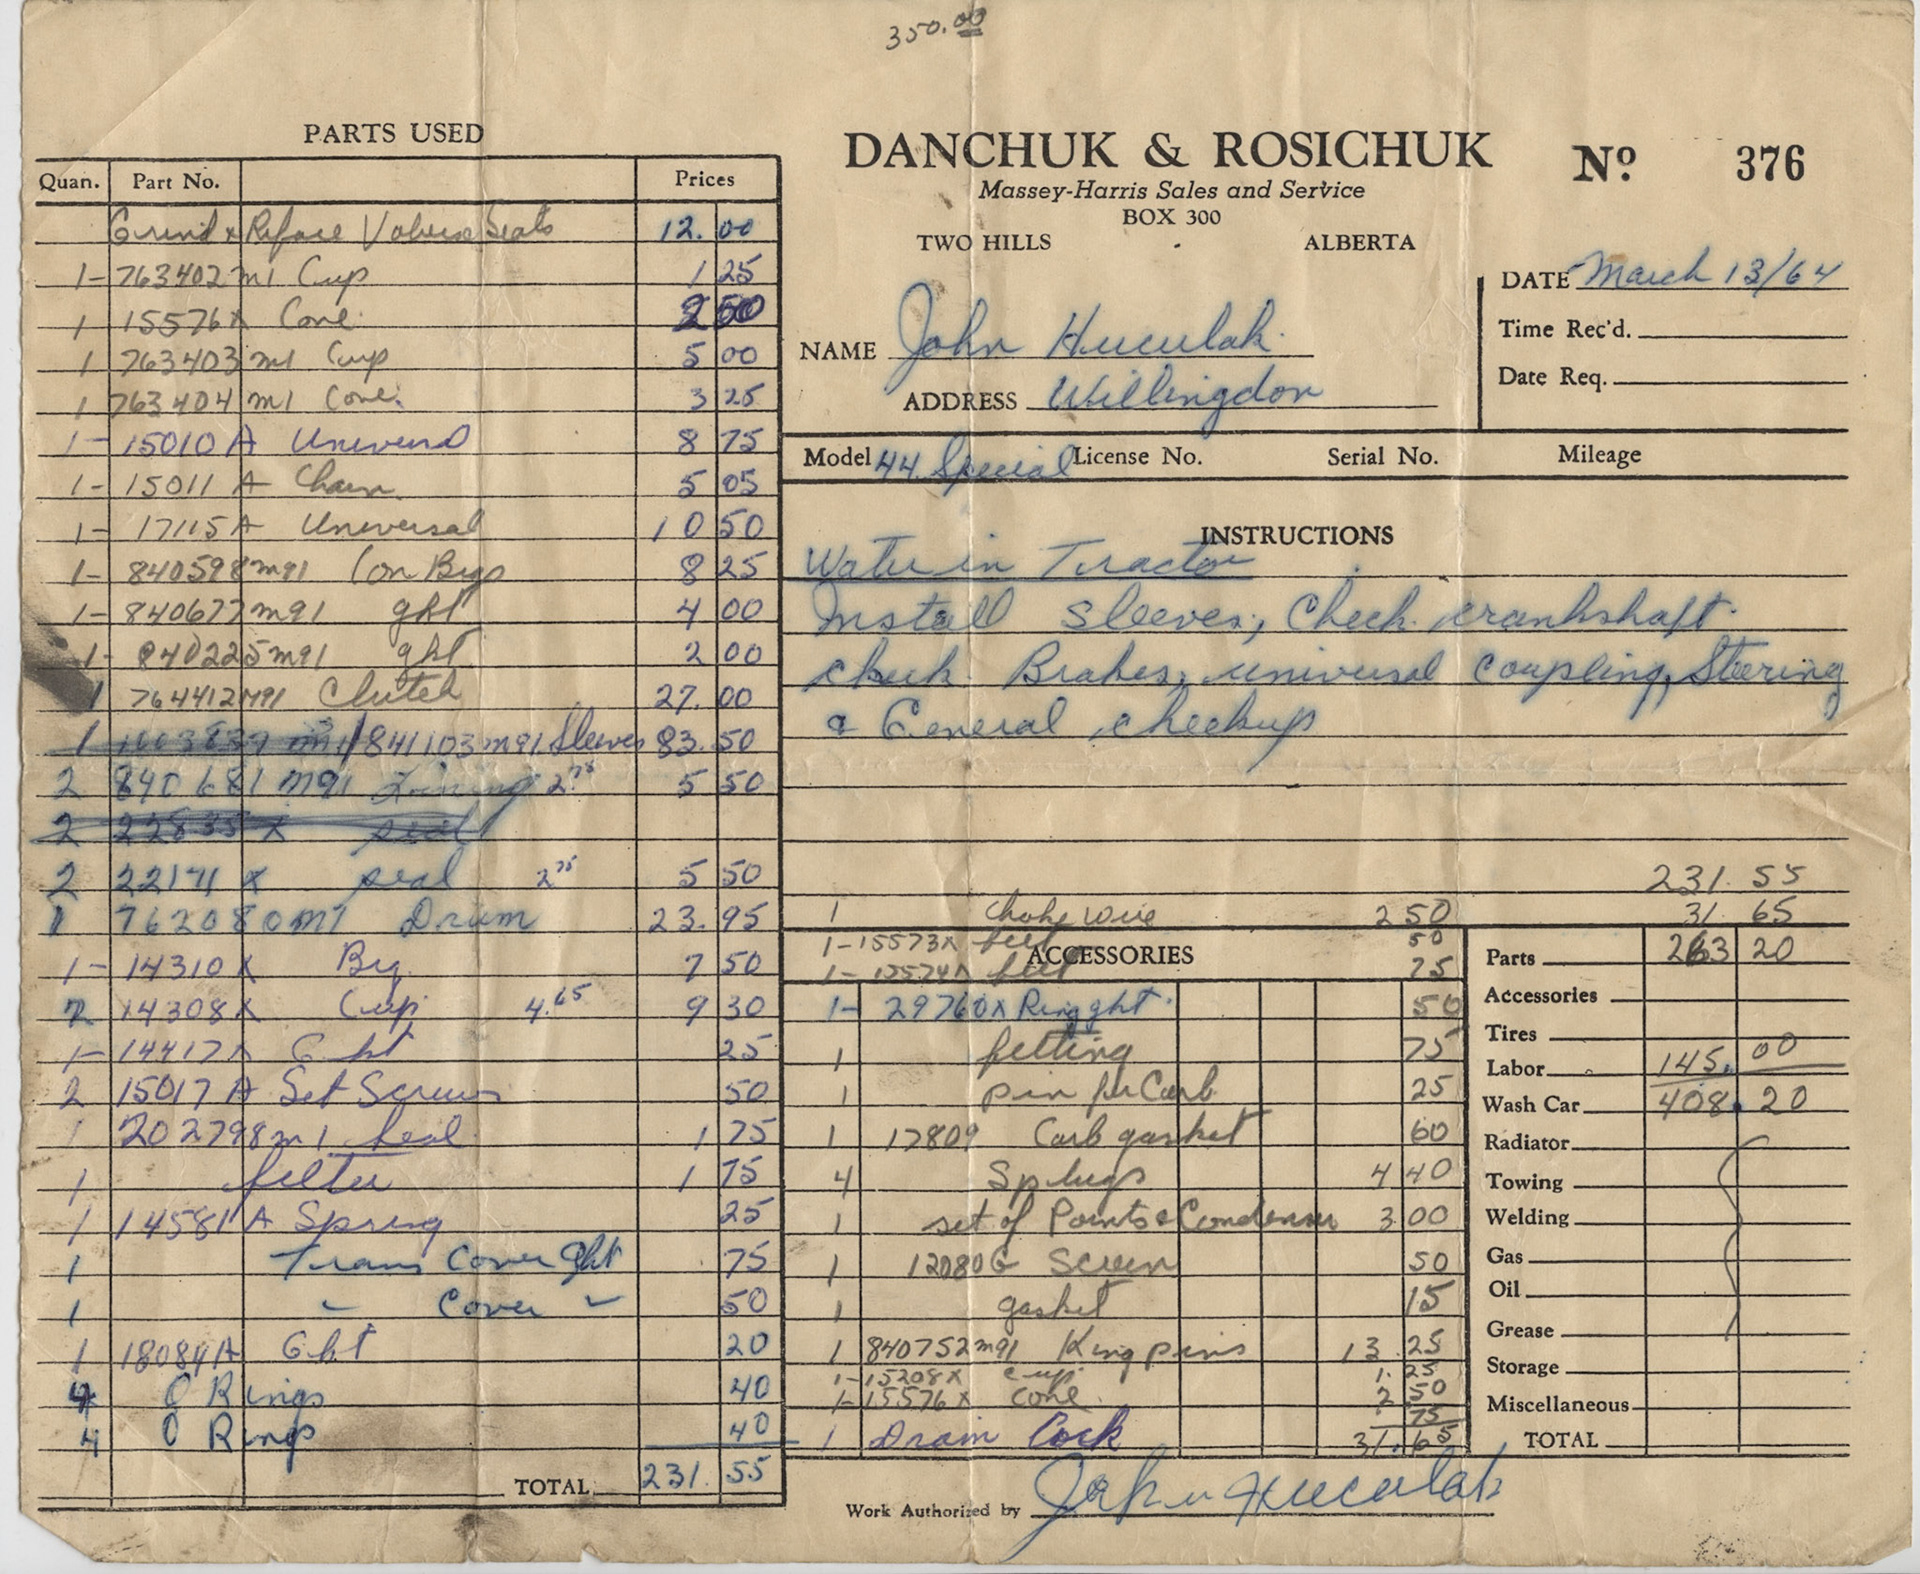 350.00
PARTS USED
Quan. Part No. Prices
Grind & Reface Valves & Seats 12.00
1- 763402 m1 Cup 1 25
1 15576X Cone 2 50
1 763403 m1 Cup 5 00
1 763404 m1 Cone 3 25
1- 15010 A Universl 8 75
1- 15011 A Chain 5 05
1- 17115 A Universal 10 50
1- 840598 m91 Con Brgs 8 25
1- 840677 m91 ght 4 00
1- 840225 m91 ght 2 00
1 764412 M91 Clutch 27.00
1 841103 m91 Sleeves 83.50
2 840681 M91 Lining 2.75 5 50
2 22835 X seal
2 22171 X seal 2 75 5 50
1 762080 M1 Drum 23.95
1- 14310 X Brg. 7 50
2 14308 X Cup 4.65 9 30
1- 14417 X Ght 25
2 15017 A Set Screws 50
1 202798 m1 Seal 1 75
1 filter 1 75
1 14581 A Spring 25
1 Trans Cover Ght 75
1 " Cover " 50
1 18084 A Ght 20
4 O Rings 40
4 O Rings 40
TOTAL 231.55
DANCHUK & ROSICHUK
Massey-Harris Sales and Service
BOX 300
TWO HILLS ALBERTA
No. 376
DATE March 13/64
Time Rec'd.
Date Req.
NAME John Huculak
ADDRESS Willingdon
Model 44 Special License No. Serial No. Mileage
INSTRUCTIONS
Water in Tractor
Install Sleeves, Check crankshaft
check Brakes, universal coupling, Steering
& General checkup
1 choke wire 2 50
1- 15573X felt 50
ACCESSORIES
1- 15574X felt 75
1- 29760X Ring ght 50
1 fitting 75
1 pin for Carb 25
1 17809 Carb gasket 60
4 Sp plugs 4 40
1 set of Points & Condenser 3.00
1 12080G Screen 50
1 gasket 15
1 840752 m91 King pins 13.25
1- 15208X cup 1.25
1- 15576X cone 2 50
1 Drain Cock 75
31.65
231.55
31 65
Parts 263 20
Accessories
Tires
Labor 145.00
Wash Car 408.20
Radiator
Towing
Welding
Gas
Oil
Grease
Storage
Miscellaneous
TOTAL
Work Authorized by John Huculak